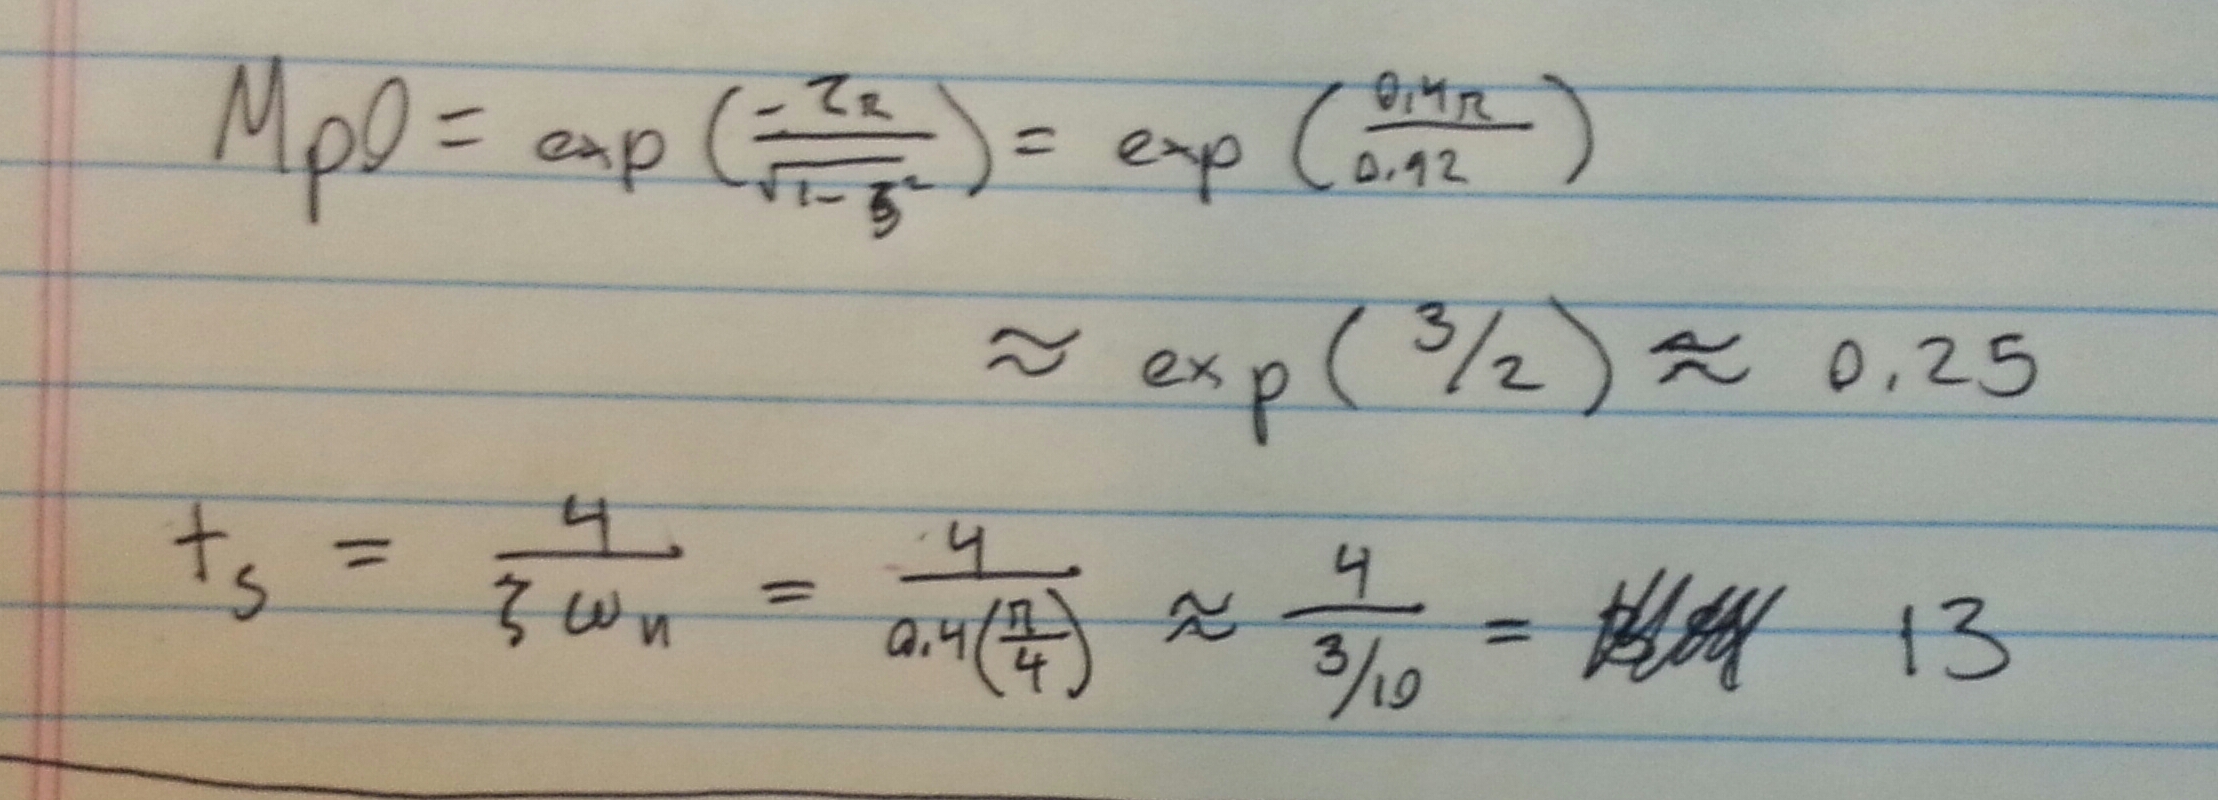 Mp0 = exp(-ζπ/√1-ζ²) = exp(0.4π/0.92)
≈ exp(3/2) ≈ 0.25
ts = 4/ζωn = 4/0.4(π/4) ≈ 4/3/10 = 13